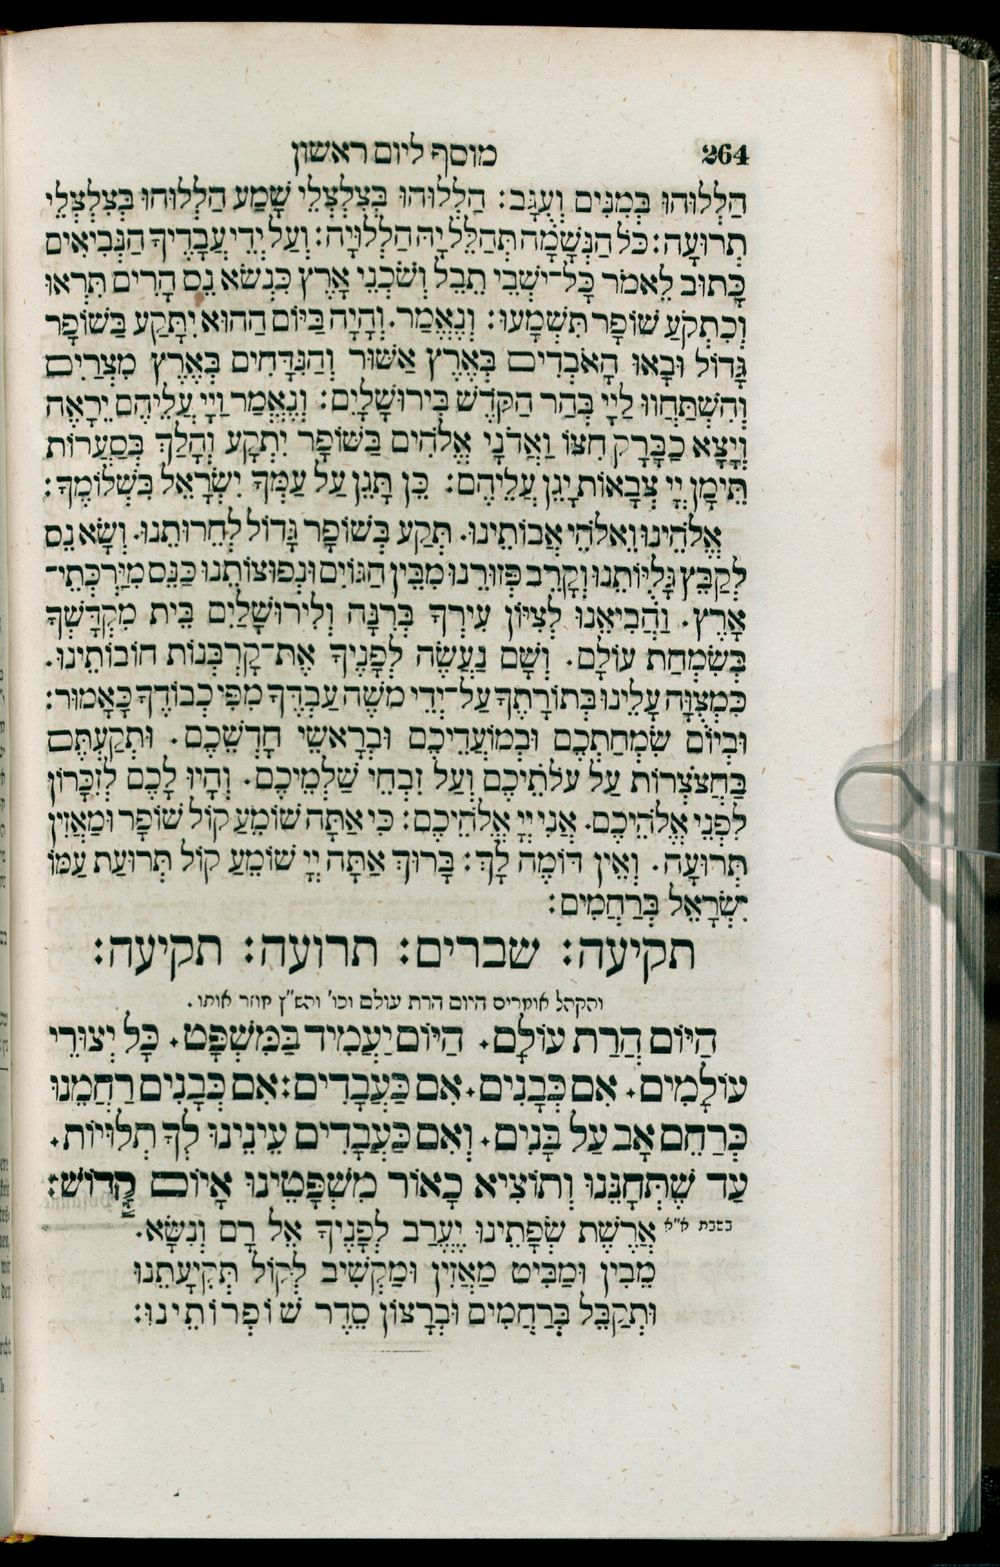 264 מוסף ליום ראשון
הַלְלוּהוּ בְּמִנִּים וְעֻגָב: הַלְלוּהוּ בְּצִלְצְלֵי שָׁמַע הַלְלוּהוּ בְּצִלְצְלֵי
תְרוּעָה: כֹּל הַנְּשָׁמָה תְּהַלֵּל יָהּ הַלְלוּיָהּ: וְעַל יְדֵי עֲבָדֶיךָ הַנְּבִיאִים
כָּתוּב לֵאמֹר כָּל־יֹשְׁבֵי תֵבֵל וְשֹׁכְנֵי אָרֶץ כִּנְשֹׂא נֵס הָרִים תִּרְאוּ
וְכִתְקֹעַ שׁוֹפָר תִּשְׁמָעוּ: וְנֶאֱמַר. וְהָיָה בַּיּוֹם הַהוּא יִתָּקַע בְּשׁוֹפָר
גָּדוֹל וּבָאוּ הָאֹבְדִים בְּאֶרֶץ אַשּׁוּר וְהַנִּדָּחִים בְּאֶרֶץ מִצְרַיִם
וְהִשְׁתַּחֲווּ לַיְיָ בְּהַר הַקֹּדֶשׁ בִּירוּשָׁלָיִם: וְנֶאֱמַר וַיְיָ עֲלֵיהֶם יֵרָאֶה
וְיָצָא כַבָּרָק חִצּוֹ וַאדֹנָי אֱלֹהִים בַּשּׁוֹפָר יִתְקָע וְהָלַךְ בְּסַעֲרוֹת
תֵּימָן יְיָ צְבָאוֹת יָגֵן עֲלֵיהֶם: כֵּן תָּגֵן עַל עַמְּךָ יִשְׂרָאֵל בִּשְׁלוֹמֶךָ:
אֱלֹהֵינוּ וֵאלֹהֵי אֲבוֹתֵינוּ. תְּקַע בְּשׁוֹפָר גָּדוֹל לְחֵרוּתֵנוּ. וְשָׂא נֵס
לְקַבֵּץ גָּלֻיּוֹתֵנוּ וְקָרֵב פְּזוּרֵנוּ מִבֵּין הַגּוֹיִם וּנְפוּצוֹתֵנוּ כַּנֵּס מִיַּרְכְּתֵי־
אָרֶץ. וַהֲבִיאֵנוּ לְצִיּוֹן עִירְךָ בְּרִנָּה וְלִירוּשָׁלַיִם בֵּית מִקְדָּשְׁךָ
בְּשִׂמְחַת עוֹלָם. וְשָׁם נַעֲשֶׂה לְפָנֶיךָ אֶת־קָרְבְּנוֹת חוֹבוֹתֵינוּ.
כִּמְצֻוָּה עָלֵינוּ בְּתוֹרָתֶךָ עַל־יְדֵי מֹשֶׁה עַבְדֶּךָ מִפִּי כְבוֹדֶךָ כָּאָמוּר:
וּבְיוֹם שִׂמְחַתְכֶם וּבְמוֹעֲדֵיכֶם וּבְרָאשֵׁי חָדְשֵׁכֶם. וּתְקַעְתֶּם
בַּחֲצֹצְרוֹת עַל עֹלֹתֵיכֶם וְעַל זִבְחֵי שַׁלְמֵיכֶם. וְהָיוּ לָכֶם לְזִכָּרוֹן
לִפְנֵי אֱלֹהֵיכֶם. אֲנִי יְיָ אֱלֹהֵיכֶם: כִּי אַתָּה שׁוֹמֵעַ קוֹל שׁוֹפָר וּמַאֲזִין
תְּרוּעָה. וְאֵין דּוֹמֶה לָּךְ: בָּרוּךְ אַתָּה יְיָ שׁוֹמֵעַ קוֹל תְּרוּעַת עַמּוֹ
יִשְׂרָאֵל בְּרַחֲמִים:
תקיעה: שברים: תרועה: תקיעה:
והקהל אומרים היום הרת עולם וכו' והש"ץ חוזר אותו.
הַיּוֹם הֲרַת עוֹלָם. הַיּוֹם יַעֲמִיד בַּמִּשְׁפָּט. כָּל יְצוּרֵי
עוֹלָמִים. אִם כְּבָנִים. אִם כַּעֲבָדִים: אִם כְּבָנִים רַחֲמֵנוּ
כְּרַחֵם אָב עַל בָּנִים. וְאִם כַּעֲבָדִים עֵינֵינוּ לְךָ תְלוּיוֹת.
עַד שֶׁתְּחָנֵּנוּ וְתוֹצִיא כָאוֹר מִשְׁפָּטֵינוּ אָיוֹם קָדוֹשׁ:
בשבת א"א אֲרֶשֶׁת שְׂפָתֵינוּ יֶעֱרַב לְפָנֶיךָ אֵל רָם וְנִשָּׂא.
מֵבִין וּמַבִּיט מַאֲזִין וּמַקְשִׁיב לְקוֹל תְּקִיעָתֵנוּ
וּתְקַבֵּל בְּרַחֲמִים וּבְרָצוֹן סֵדֶר שׁוֹפְרוֹתֵינוּ: